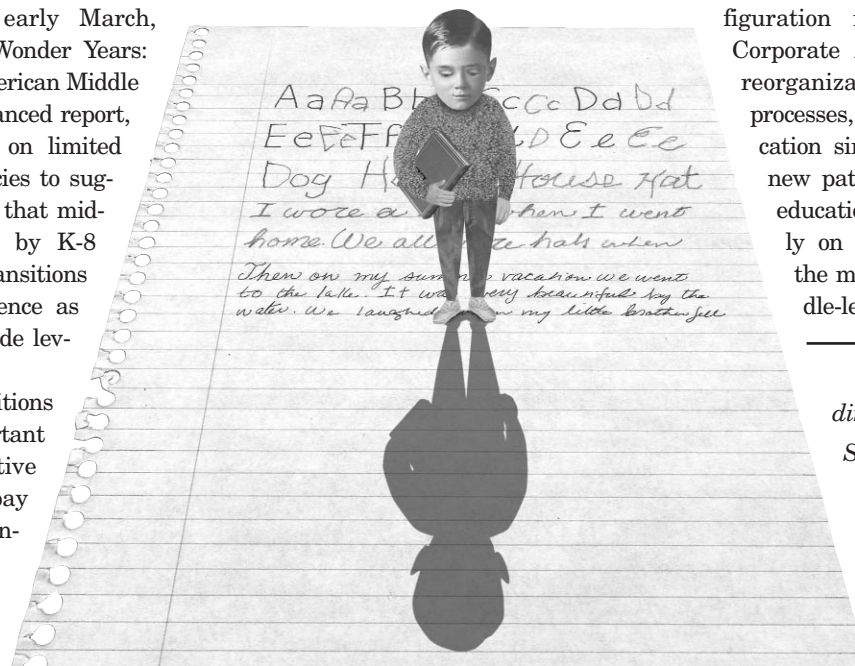 early March,
Wonder Years:
erican Middle
anced report,
on limited
cies to sug-
that mid-
by K-8
ansitions
ence as
de lev-
itions
rtant
tive
pay
n-
Aa Aa Bb Cc Cc Dd Dd
Ee Ee Ff Ee Ee
Dog House Hat
I wore a hen I went
home. We all re hats when
Then on my summ vacation we went
to the lake. It wa very beautiful by the
water. We laughed n my little brother fell
figuration
Corporate
reorganiza
processes,
cation sin
new pat
educatio
ly on
the m
dle-le
di
S